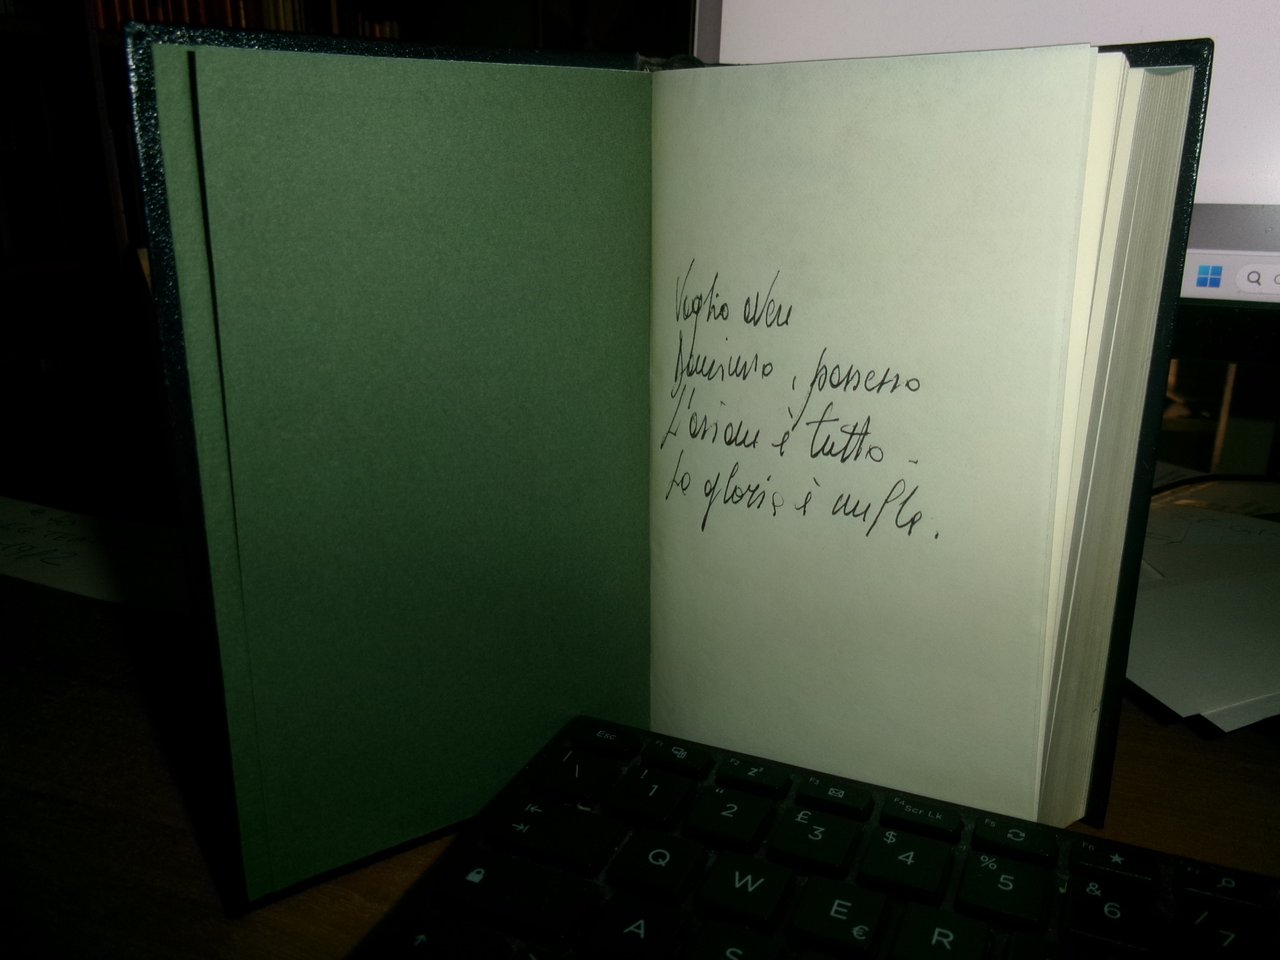 Voglio avere
Dominio, possesso
L'azione è tutto -
La gloria è nulla.
Esc
F1
F2 Zz
F3
F4 Scr Lk
F5
F6
| \
! 1
" 2
£ 3
$ 4
% 5
& 6
/ 7
Q W E € R
A S